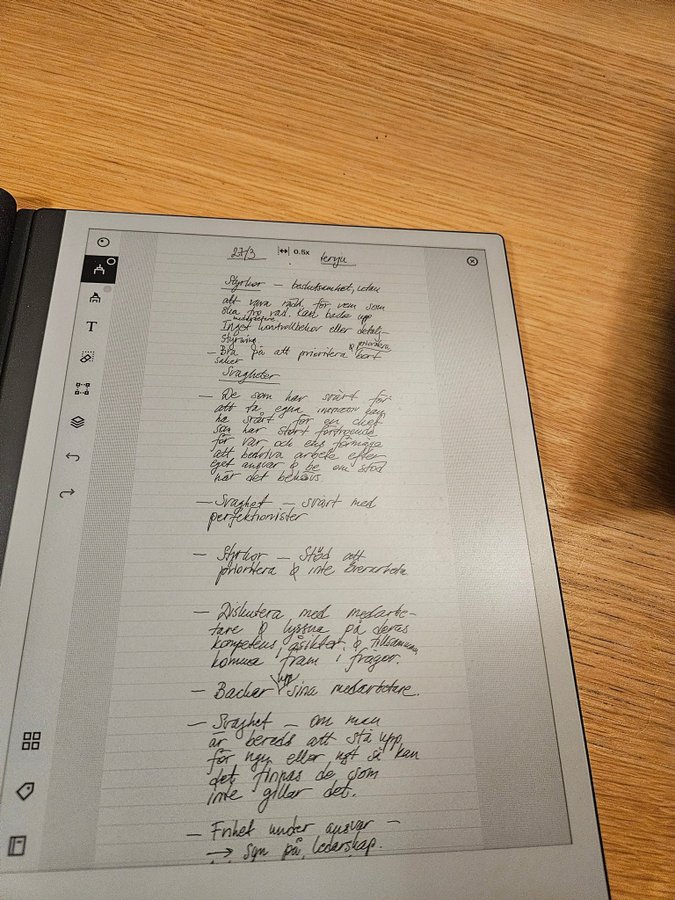 27/3 0.5x
Styrkor – beslutsamhet, utan
att vara rädd för vem som
ska tro vad. Kan backa upp
medarbetare
Inget kontrollbehov eller detalj-
styrning
– Bra på att prioritera & prioritera bort
saker
Svagheter
– De som har svårt för
att ta egna initiativ kan
ha svårt för en chef
som har stort förtroende
för var och ens förmåga
att bedriva arbete efter
eget ansvar & be om stöd
när det behövs.
– Svaghet – svårt med
perfektionister
– Styrkor – Stöd att
prioritera & inte överarbeta
– Diskutera med medarbe-
tare & lyssna på deras
kompetens, åsikter & tillsammans
komma fram i frågor.
– Backar upp sina medarbetare.
– Svaghet – om man
är beredd att stå upp
för ngn eller ngt så kan
det finnas de som
inte gillar det.
– Frihet under ansvar –
→ syn på ledarskap.
T